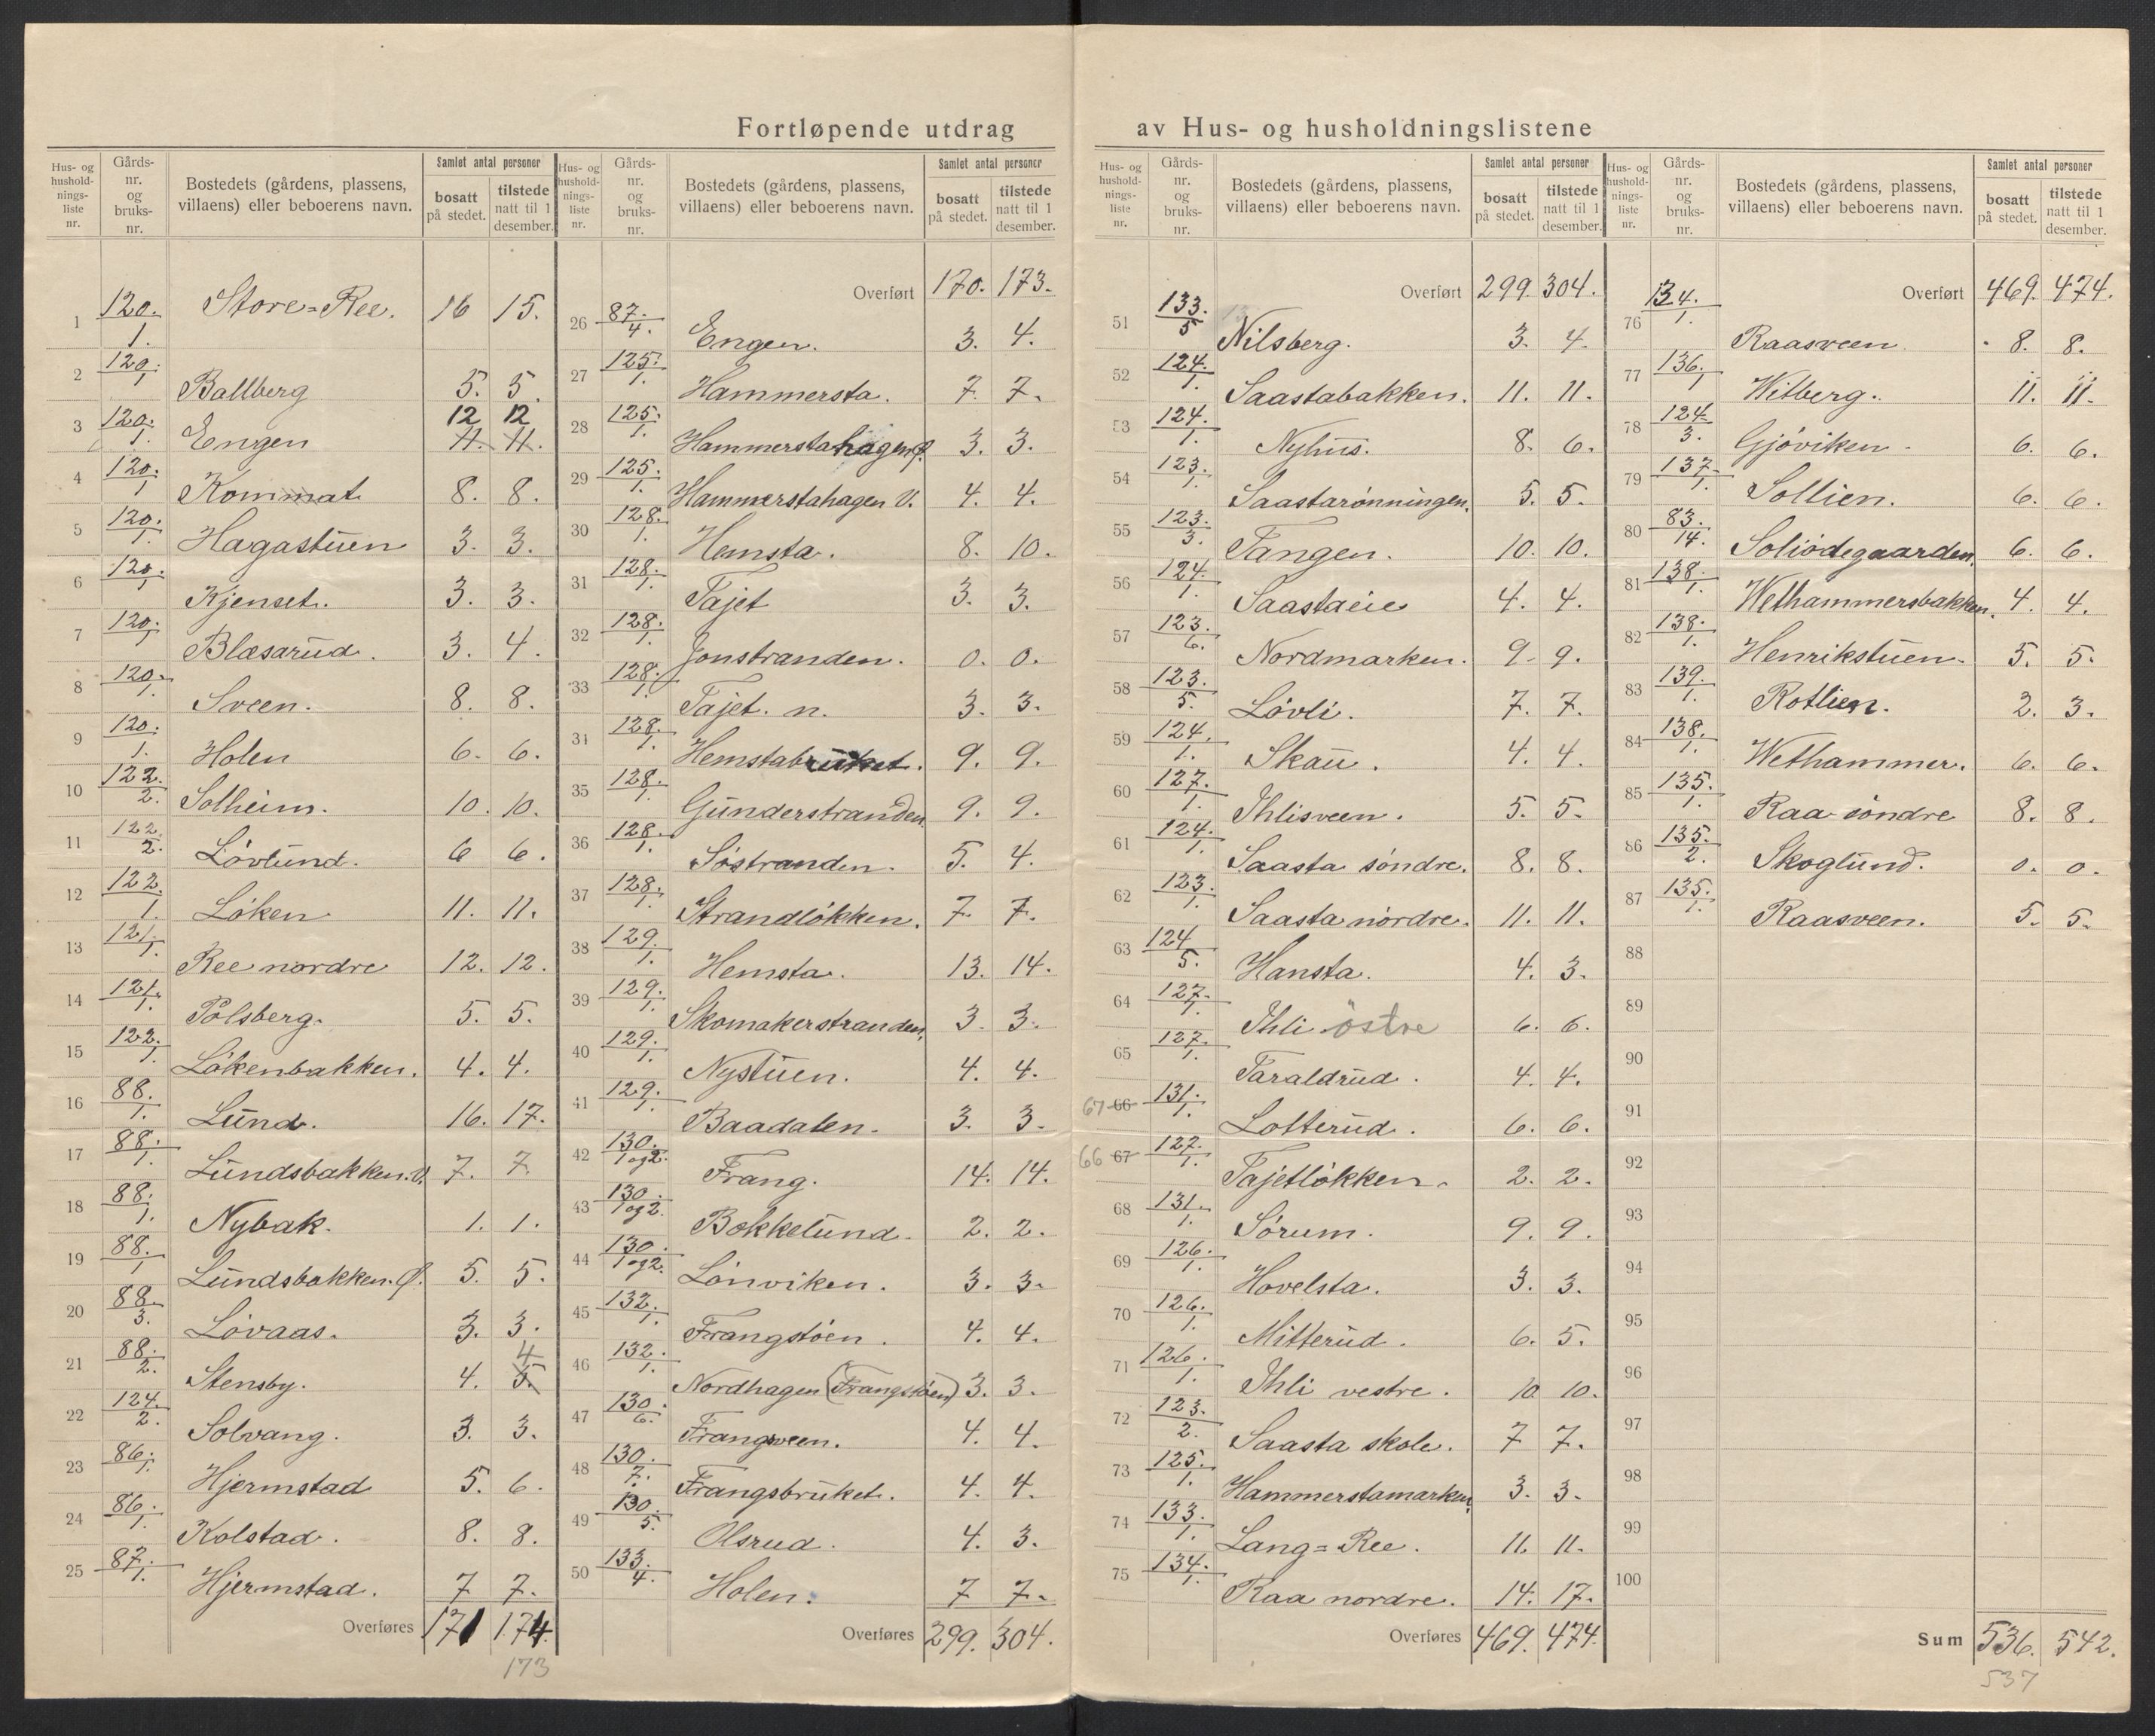 Fortløpende utdrag av Hus- og husholdningslistene
Hus- og hushold-nings-liste nr. | Gårds-nr. og bruks-nr. | Bostedets (gårdens, plassens, villaens) eller beboerens navn. | Samlet antal personer | bosatt på stedet. | tilstede natt til 1 desember.
1 120./1. Store=Ree. 16 15.
2 120./1 Ballberg 5. 5.
3 120./1. Engen 12 12 11. 11.
4 120./1 Kommat 8. 8.
5 120./1. Hagastuen 3. 3.
6 120./1 Kjenset. 3. 3.
7 120./1 Blæsarud. 3. 4.
8 120./1. Sveen. 8. 8.
9 120./1. Holen 6. 6.
10 122./2. Solheim. 10. 10.
11 122./2. Lövlund. 6 6.
12 122./1. Löken 11. 11.
13 121./1. Ree nordre 12. 12.
14 121./1. Pålsberg. 5. 5.
15 122./1. Lökenbakken. 4. 4.
16 88./1. Lund. 16. 17.
17 88./1. Lundsbakken. V. 7. 7.
18 88./1. Nybak. 1. 1.
19 88./1 Lundsbakken. Ø. 5. 5.
20 88./3. Lövaas. 3. 3.
21 88./2. Stensby. 4. 5. 4
22 124./2. Solvang. 3. 3.
23 86./1. Hjermstad 5. 6.
24 86./1. Kolstad. 8. 8.
25 87./1. Hjermstad. 7 7.
Overføres 171 174.
173
Hus- og hushold-nings-liste nr. | Gårds-nr. og bruks-nr. | Bostedets (gårdens, plassens, villaens) eller beboerens navn. | Samlet antal personer | bosatt på stedet. | tilstede natt til 1 desember.
Overført 170. 173.
26 87./4. Engen. 3. 4.
27 125./1. Hammersta. 7. 7.
28 125./1. Hammerstahagen Ø. 3. 3.
29 125./1. Hammerstahagen V. 4. 4.
30 128./1. Hemsta. 8. 10.
31 128./1. Tajet 3. 3.
32 128./1. Jonstranden. 0. 0.
33 128./1. Tajet. n. 3. 3.
34 128./1. Hemstabruket. 9. 9.
35 128./1. Gunderstranden. 9. 9.
36 128./1. Söstranden. 5. 4.
37 128./1. Strandlökken. 7. 7.
38 129./1. Hemsta. 13. 14.
39 129./1. Skomakerstranden. 3. 3.
40 129./1. Nystuen. 4. 4.
41 129./1. Baadalen. 3. 3.
42 130./1 og 2. Frang. 14. 14.
43 130./1 og 2. Bokkelund. 2. 2.
44 130./1 og 2. Lönviken. 3. 3.
45 132./1. Frangstöen. 4. 4.
46 132./1. Nordhagen (Frangstöen) 3. 3.
47 130./6. Frangsveen. 4. 4.
48 130./7. Frangsbruket. 4. 4.
49 130./5. Olsrud. 4. 3.
50 133./4. Holen. 7 7.
Overføres 299. 304.
Hus- og hushold-nings-liste nr. | Gårds-nr. og bruks-nr. | Bostedets (gårdens, plassens, villaens) eller beboerens navn. | Samlet antal personer | bosatt på stedet. | tilstede natt til 1 desember.
Overført 299. 304.
51 133./5 Nilsberg. 3. 4.
52 124./1. Saastabakken. 11. 11.
53 124./1. Nyhus. 8. 6.
54 123./1. Saastarönningen. 5. 5.
55 123./3. Tangen. 10. 10.
56 124./1. Saastaeie 4. 4.
57 123./6. Nordmarken. 9. 9.
58 123./5. Lövli. 7. 7.
59 124./1. Skau. 4. 4.
60 127./1. Ihlisveen. 5. 5.
61 124./1. Saasta söndre. 8. 8.
62 123./1. Saasta nordre. 11. 11.
63 124/5. Hansta. 4. 3.
64 127./1. Ihli östre 6. 6.
65 127./1. Taraldrud. 4. 4.
67 66 131./1. Lotterud. 6. 6.
66 67 127./1. Tajetlökken. 2. 2.
68 131./1. Sörum. 9. 9.
69 126./1. Hovelsta. 3. 3.
70 126./1. Mitterud. 6. 5.
71 126./1. Ihli vestre. 10 10.
72 123./2. Saasta skole. 7 7.
73 125./1. Hammerstamarken. 3. 3.
74 133./1. Lang=Ree. 11. 11.
75 134./1. Raa nordre. 14. 17.
Overføres 469. 474.
Hus- og hushold-nings-liste nr. | Gårds-nr. og bruks-nr. | Bostedets (gårdens, plassens, villaens) eller beboerens navn. | Samlet antal personer | bosatt på stedet. | tilstede natt til 1 desember.
Overført 469. 474.
76 134./1. Raasveen 8. 8.
77 136./1 Witberg. 11. 11.
78 124/3. Gjöviken 6. 6.
79 137./1. Sollien. 6. 6.
80 83./14. Soliödegaarden. 6. 6.
81 138./1. Wethammersbakken. 4. 4.
82 138./1. Henrikstuen. 5. 5.
83 139./1. Rotlien. 2. 3.
84 138./1. Wethammer. 6. 6.
85 135./1. Raa söndre 8. 8.
86 135./2. Skoglund. 0. 0.
87 135./1. Raasveen. 5. 5.
88
89
90
91
92
93
94
95
96
97
98
99
100
Sum 536. 542.
537